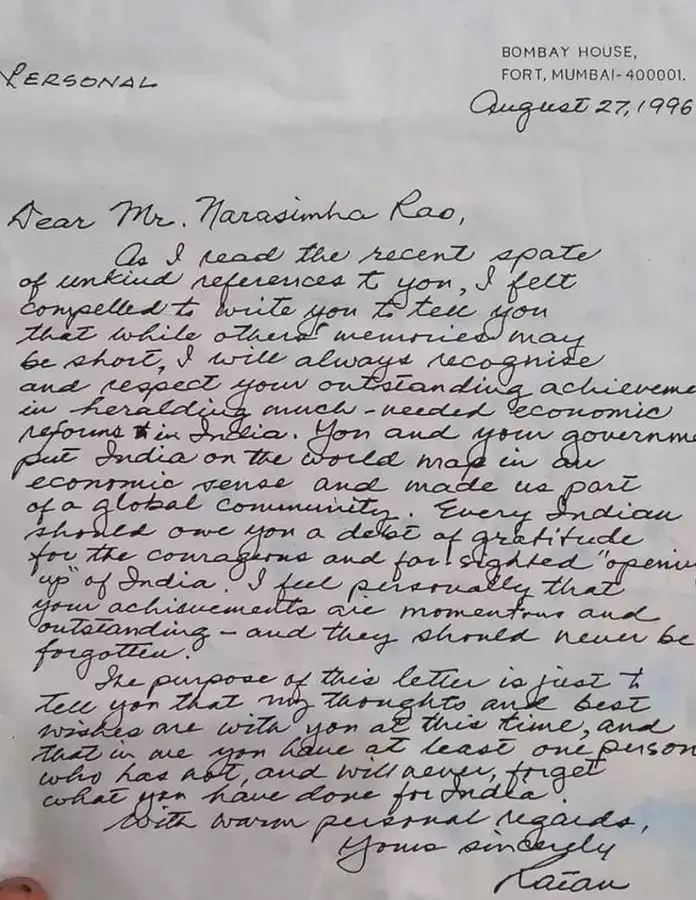 BOMBAY HOUSE,
FORT, MUMBAI-400001.
PERSONAL
August 27, 1996
Dear Mr. Narasimha Rao,
As I read the recent spate
of unkind references to you, I felt
compelled to write you to tell you
that while others' memories may
be short, I will always recognise
and respect your outstanding achieveme
in heralding much-needed economic
reforms in India. You and your governme
put India on the world map in an
economic sense and made us part
of a global community. Every Indian
should owe you a debt of gratitude
for the courageous and far-sighted "openin
up" of India. I feel personally that
your achievements are momentous and
outstanding - and they should never be
forgotten.
The purpose of this letter is just to
tell you that my thoughts and best
wishes are with you at this time, and
that in me you have at least one person
who has not, and will never, forget
what you have done for India.
With warm personal regards,
Yours sincerely
Ratan